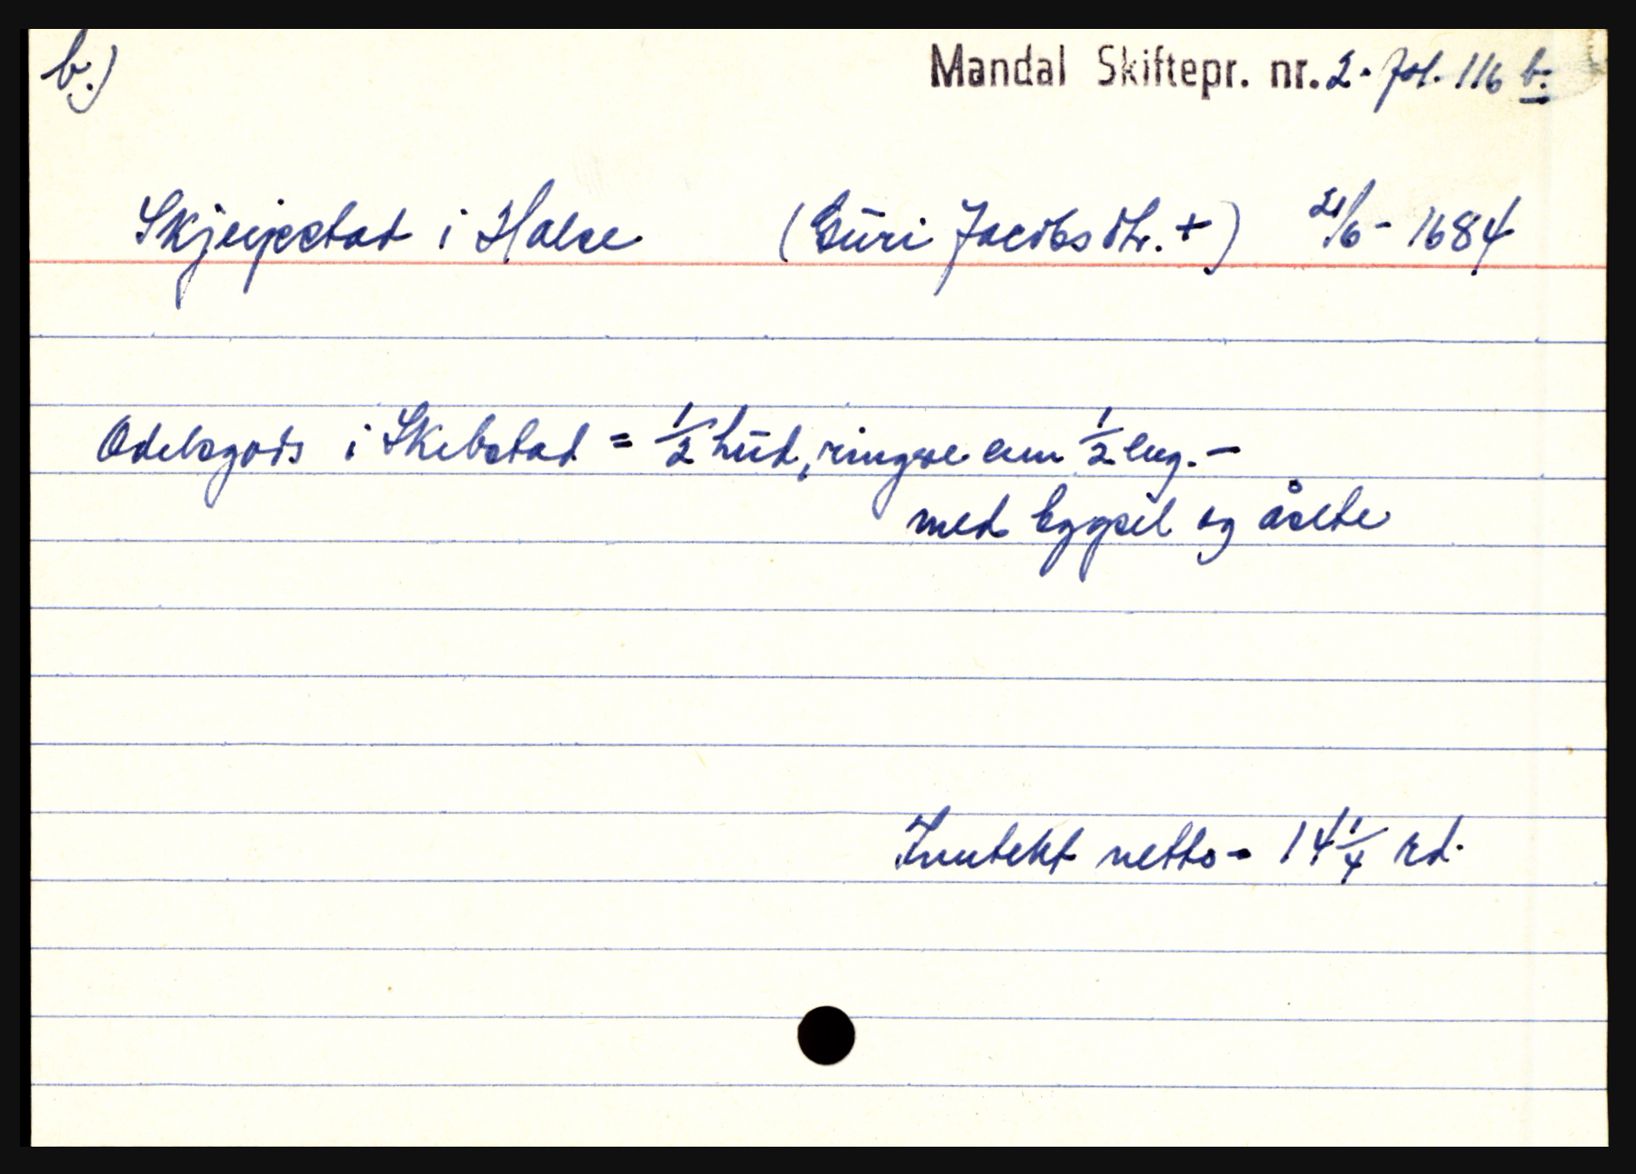 b.) Mandal Skiftepr. nr. 2. fol. 116 b.
Skjeipstad i Halse (Guri Jacobs dtr. +) 21/6 - 1684
Odelsgods i Skebstad = 1/2 hud, ringere enn 1/2 eng. -
med bygsel og åsete
Inntekt netto - 14 1/4 rd.